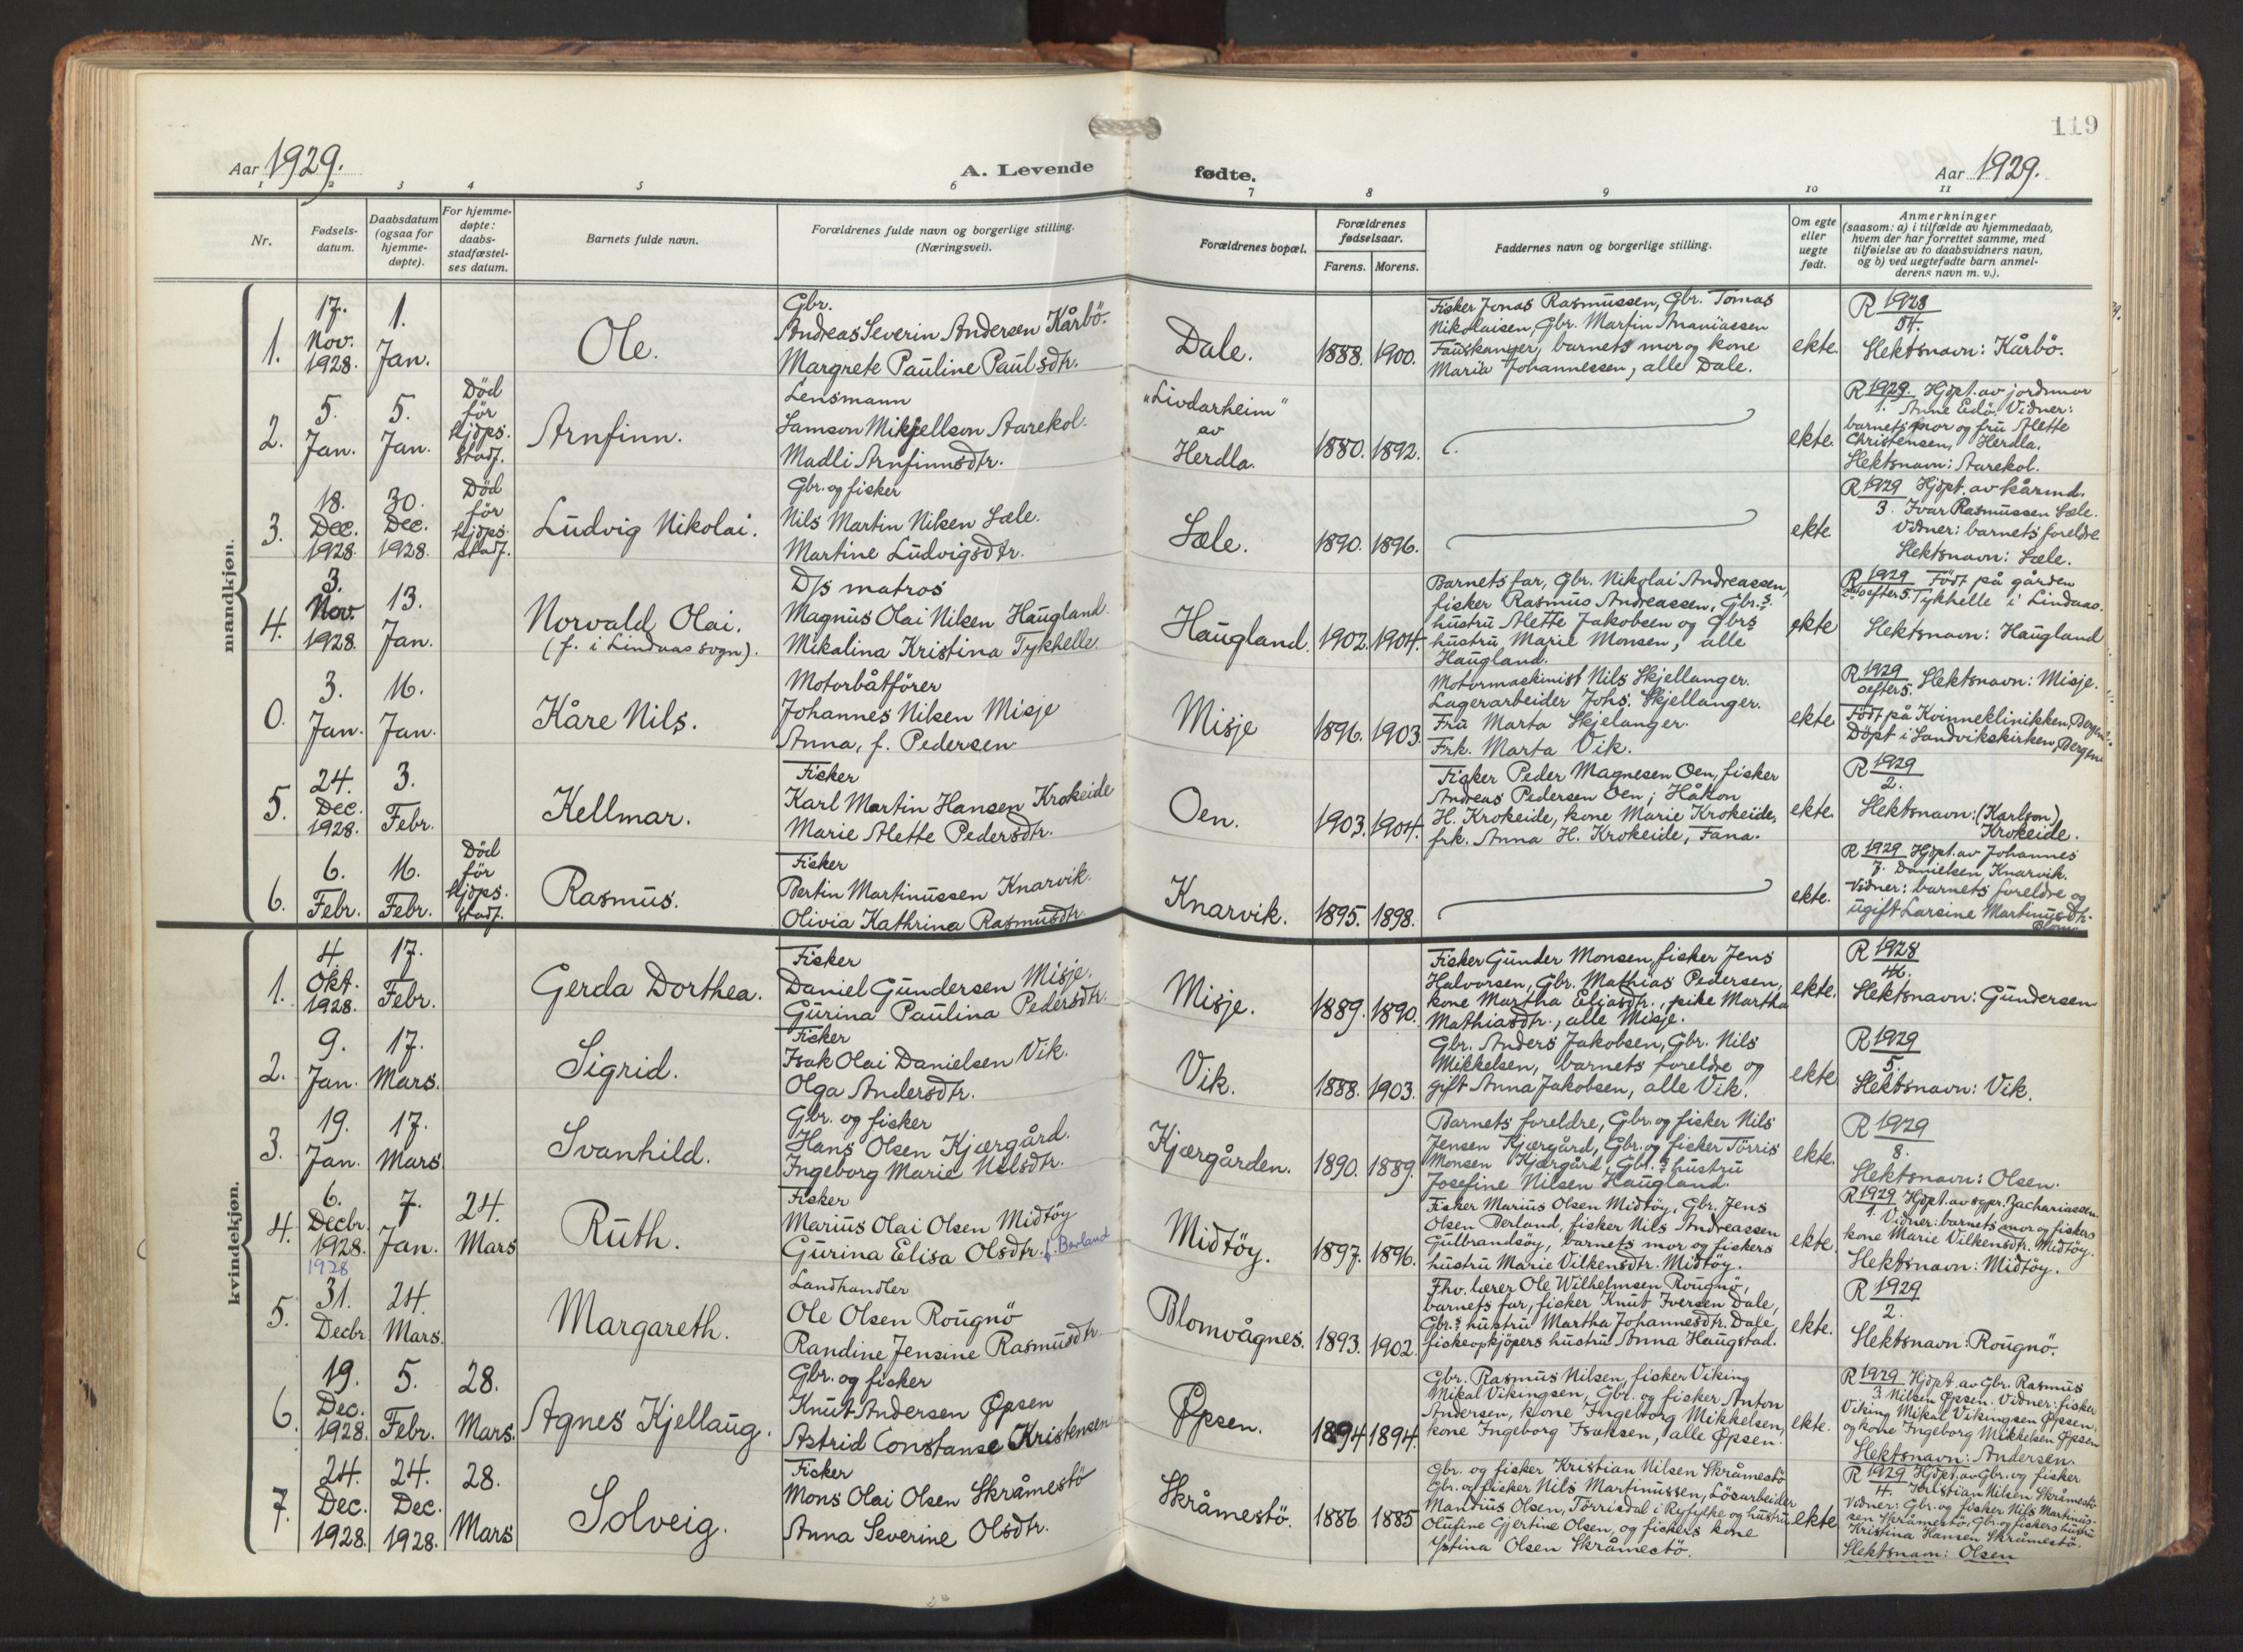 119
Aar 1929.
A. Levende fødte.
Aar 1929.
1 2 3 4 5 6 7 8 9 10 11
Nr.
Fødsels-
datum.
Daabsdatum
(ogsaa for
hjemme-
døpte).
For hjemme-
døpte:
daabs-
stadfæstel-
ses datum.
Barnets fulde navn.
Forældrenes fulde navn og borgerlige stilling.
(Næringsvei).
Forældrenes bopæl.
Forældrenes
fødselsaar.
Farens. Morens.
Faddernes navn og borgerlige stilling.
Om egte
eller
uegte
født.
Anmerkninger
(saasom: a) i tilfælde av hjemmedaab,
hvem der har forrettet samme, med
tilføielse av to daabsvidners navn,
og b) ved uegtefødte barn anmel-
derens navn m. v.).
mandkjøn.
1.
17.
Nov.
1928.
1.
Jan.
Ole.
Gbr.
Andreas Severin Andersen Kårbö.
Margrete Pauline Paulsdtr.
Dale.
1888. 1900.
Fisker Jonas Rasmussen, Gbr. Tomas
Nikolaisen, Gbr. Martin Ananiassen
Fauskanger, barnets mor og kone
Maria Johannessen, alle Dale.
ekte.
R 1928
54.
Slektsnavn: Kårbö.
2.
5.
Jan.
5.
Jan.
Död
för
hjdps.
stadf.
Arnfinn.
Lensmann
Samson Mikjellson Aarekol.
Madli Arnfinnsdtr.
"Livdarheim"
av
Herdla.
1880. 1892.
ekte.
R 1929. Hjdpt. av jordmor
1. Anne Eidö. Vidner:
barnets mor og fru Alette
Christensen, Herdla.
Slektsnavn: Aarekol.
3.
18.
Dec.
1928.
30.
Dec.
1928.
Död
för
hjdps.
stadf.
Ludvig Nikolai.
Gbr. og fisker
Nils Martin Nilsen Sæle.
Martine Ludvigsdtr.
Sæle.
1890. 1896.
ekte
R 1929 Hjdpt. av kårmd.
3. Ivar Rasmussen Sæle.
Vidner: barnets foreldre
Slektsnavn: Sæle.
4.
3.
Nov.
1928.
13.
Jan.
Norvald Olai.
(f. i Lindaas sogn).
D/s matros
Magnus Olai Nilsen Haugland.
Mikalina Kristina Tykhelle.
Haugland.
1902. 1904.
Barnets far, Gbr. Nikolai Andreassen,
fisker Rasmus Andreassen, Gbr.s
hustru Alette Jakobsen og Gbrs
hustru Marie Monsen, alle
Haugland.
ekte
R 1929 Födt på gården
efter 5. Tykhelle i Lindaas.
Slektsnavn: Haugland
0.
3.
Jan.
16.
Jan.
Kåre Nils.
Motorbåtförer
Johannes Nilsen Misje
Anna, f. Pedersen.
Misje
1896. 1903.
Motormaskinist Nils Skjellanger.
Lagerarbeider Johs. Skjellanger.
Fru Marta Skjelanger.
Frk. Marta Vik.
ekte.
R 1929 Slektsnavn: Misje.
efter 5.
Födt på Kvinneklinikken, Bergen
Döpt i Sandvikskirken, Bergen
5.
24.
Dec.
1928.
3.
Febr.
Kellmar.
Fisker
Karl Martin Hansen Krokeide
Marie Alette Pedersdtr.
Oen.
1903. 1904.
Fisker Peder Magnesen Oen, fisker
Andreas Pedersen Oen; Håkon
H. Krokeide, kone Marie Krokeide,
frk. Anna H. Krokeide, Fana.
ekte.
R 1929
2.
Slektsnavn: (Karlson)
Krokeide.
6.
6.
Febr.
16.
Febr.
Död
för
hjdps.
stadf.
Rasmus.
Fisker
Bertin Martinussen Knarvik.
Olivia Kathrina Rasmusdtr.
Knarvik.
1895. 1898.
ekte.
R 1929 Hjdpt. av Johannes
7. Danielsen, Knarvik.
Vidner: barnets foreldre og
ugift Larsine Martinusdtr.
Blomö
kvindekjøn.
1.
4.
Okt.
1928.
17.
Febr.
Gerda Dorthea.
Fisker
Daniel Gundersen Misje.
Gurina Paulina Pedersdtr.
Misje.
1889. 1890.
Fisker Gunder Monsen, fisker Jens
Halvorsen, Gbr. Mathias Pedersen,
kone Martha Eliasdtr., pike Martha
Mathiasdtr., alle Misje.
ekte.
R 1928
46.
Slektsnavn: Gundersen
2.
9.
Jan.
17.
Mars.
Sigrid.
Fisker
Isak Olai Danielsen Vik.
Olga Andersdtr.
Vik.
1888. 1903.
Gbr. Anders Jakobsen, Gbr. Nils
Mikkelsen, barnets foreldre og
gift Anna Jakobsen, alle Vik.
ekte
R 1929
5.
Slektsnavn: Vik.
3.
19.
Jan.
17.
Mars
Svanhild.
Gbr. og fisker
Hans Olsen Kjærgård.
Ingeborg Marie Nilsdtr.
Kjærgården.
1890. 1889.
Barnets foreldre, Gbr. og fisker Nils
Jensen Kjærgård, Gbr. og fisker Törris
Monsen Kjærgård, Gbr.s hustru
Josefine Nilsen Haugland.
ekte.
R 1929
8.
Slektsnavn: Olsen.
4.
6.
Decbr.
1928.
7.
Jan.
24.
Mars
Ruth.
Fisker
Marius Olai Olsen Midtöy
Gurina Elisa Olsdtr. f. Berland
Midtöy.
1897. 1896.
Fisker Marius Olsen Midtöy, Gbr. Jens
Olsen Berland, fisker Nils Andreassen
Gulbrandsöy, barnets mor og fiskers
hustru Marie Vilkensdtr. Midtöy.
ekte.
R 1929 Hjdpt. av sgpr. Zachariassen.
1. Vidner: barnets mor og fiskers
kone Marie Vilkensdtr. Midtöy.
Slektsnavn: Midtöy.
5.
1928
31.
Decbr
24.
Mars.
Margareth.
Landhandler
Ole Olsen Rougnö
Randine Jensine Rasmusdtr.
Blomvågnes.
1893. 1902.
Fhv. lærer Ole Wilhelmsen Rougnö,
barnets far, fisker Knut Iversen Dale,
Gbr.s hustru Martha Johannesdtr. Dale,
fiskeopkjöpers hustru Anna Haugstad.
ekte.
R 1929
2.
Slektsnavn: Rougnö.
6.
19.
Dec.
1928.
5.
Febr.
28.
Mars.
Agnes Kjellaug.
Gbr. og fisker
Knut Andersen Øpsen
Astrid Constanse Kristensen
Øpsen.
1894 1894.
Gbr. Rasmus Nilsen, fisker Viking
Mikal Vikingsen, Gbr. og fisker Anton
Andersen, kone Ingeborg Mikkelsen,
kone Ingeborg Isaksen, alle Øpsen.
ekte.
R 1929 Hjdpt. av Gbr. Rasmus
3. Nilsen Øpsen. Vidner: fisker
Viking Mikal Vikingsen Øpsen,
og kone Ingeborg Mikkelsen Øpsen
Slektsnavn: Andersen.
7.
24.
Dec.
1928.
24.
Dec.
1928.
28.
Mars
Solveig.
Fisker
Mons Olai Olsen Skråmestö
Anna Severine Olsdtr.
Skråmestö.
1886. 1885
Gbr. og fisker Kristian Nilsen Skråmestö,
Gbr. og fisker Nils Martinussen, Lösarbeider
Mandius Olsen, Törrisdal i Ryfylke og hustru
Olufine Gjertine Olsen, og fiskers kone
Ystina Olsen Skråmestö.
ekte
R 1929 Hjdpt. av Gbr. og fisker
4. Kristian Nilsen Skråmestö
Vidner: Gbr. og fisker Nils Martinus-
sen Skråmestö, Gbr. og fiskers hustru
Kristina Hansen Skråmestö.
Slektsnavn: Olsen